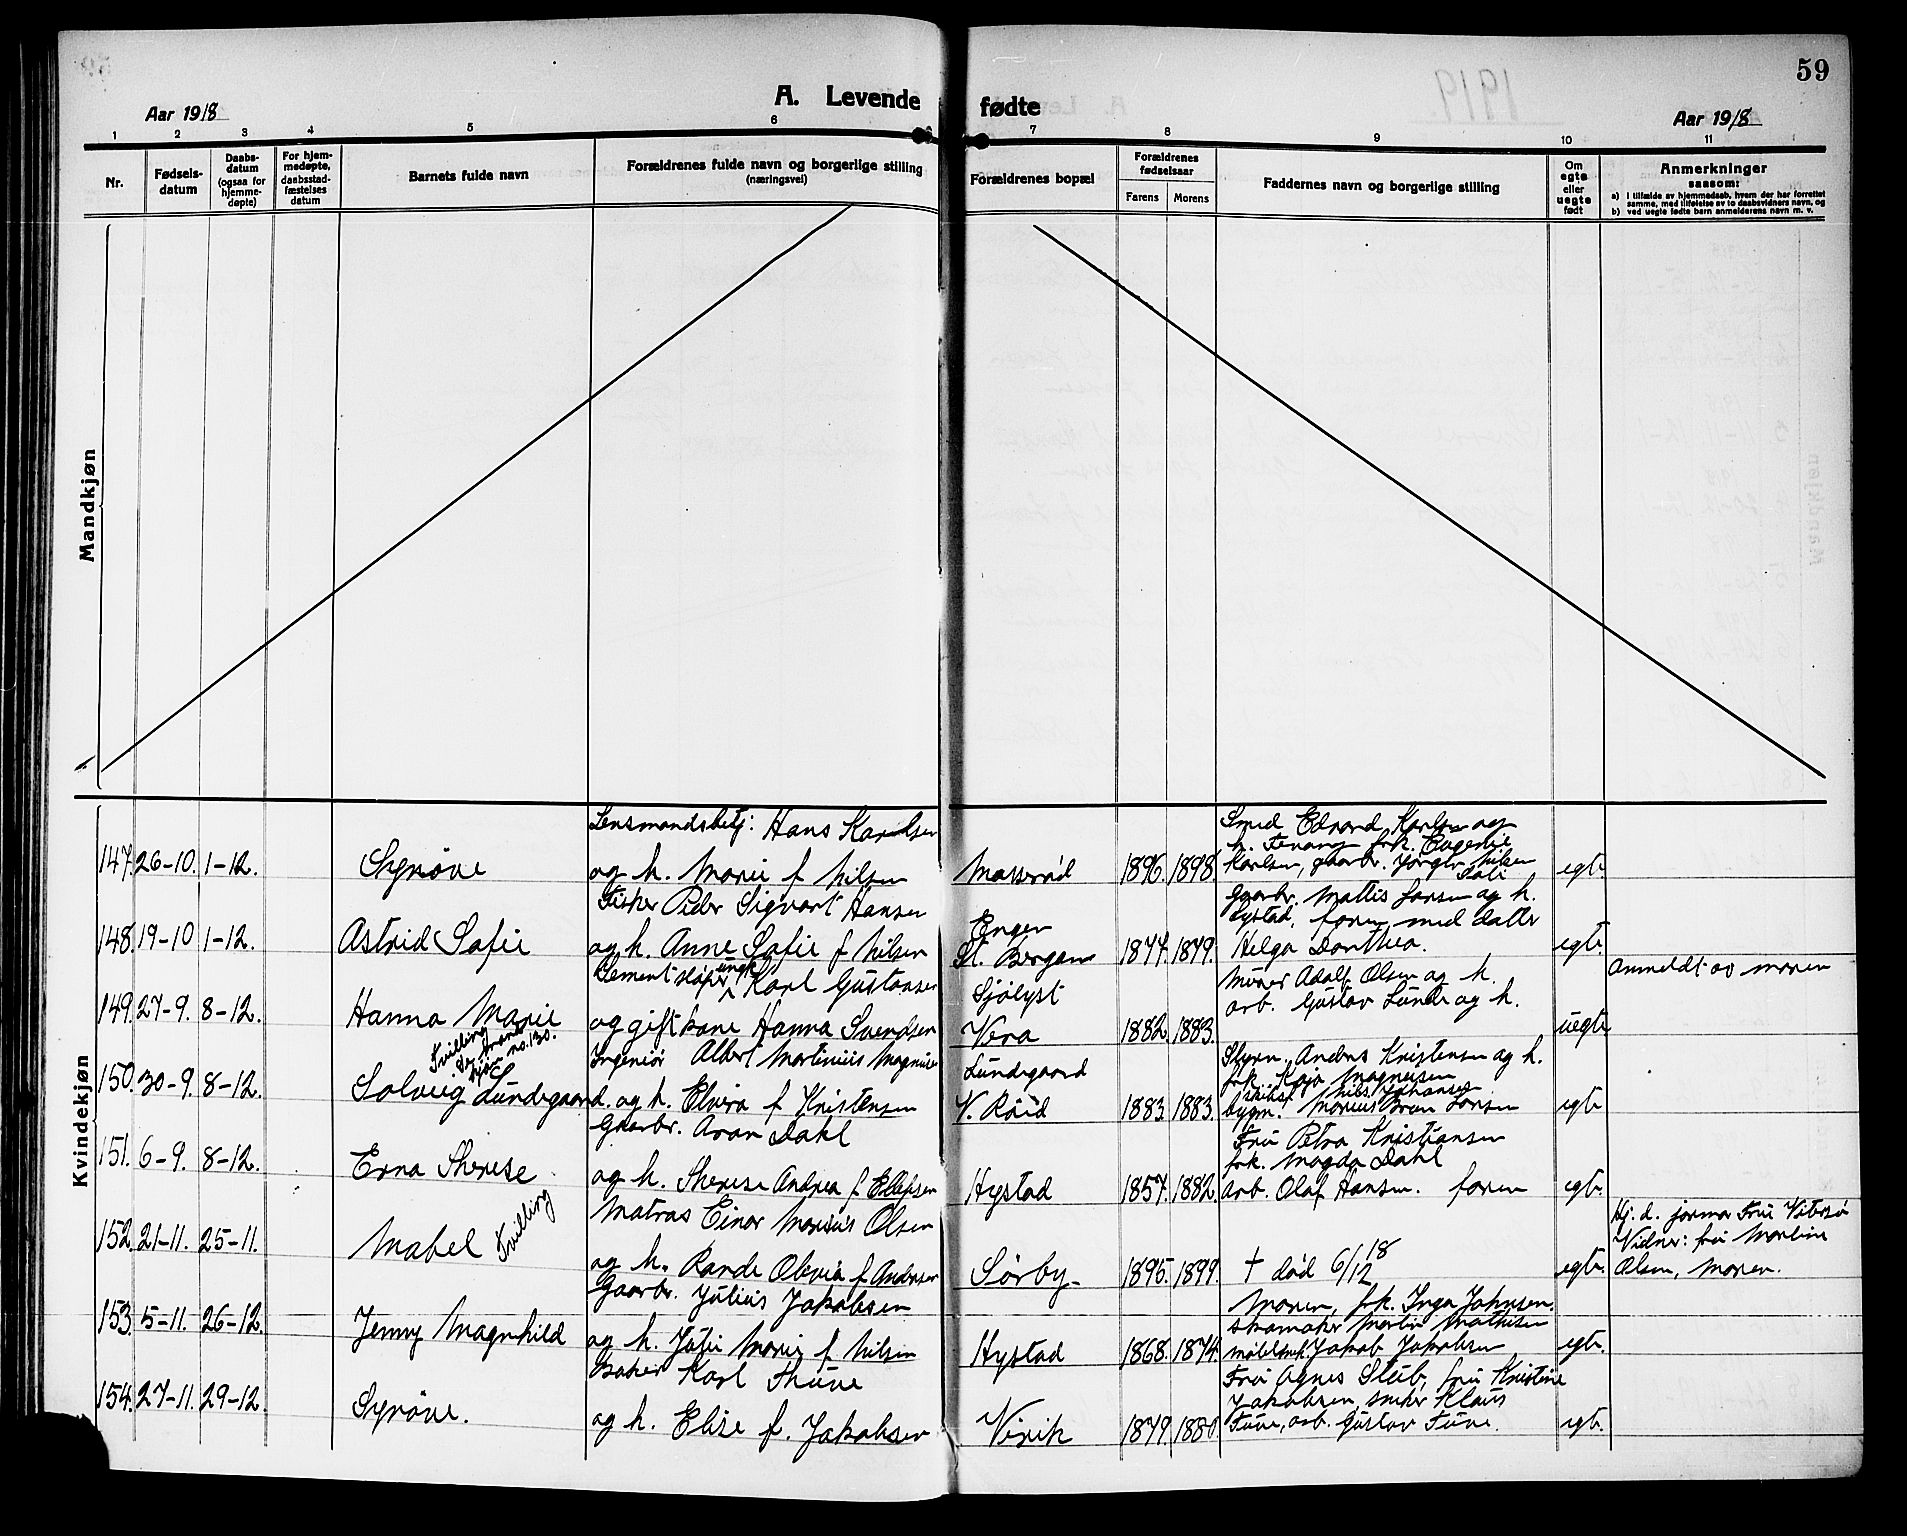 59
A. Levende fødte
Aar 1918
Aar 1918
1 2 3 4 5 6 7 8 9 10 11
Nr.
Fødsels-
datum
Daabs-
datum
(ogsaa for
hjemme-
døpte)
For hjem-
medøpte,
daabsstad-
fæstelses
datum
Barnets fulde navn
Forældrenes fulde navn og borgerlige stilling
(næringsvei)
Forældrenes bopæl
Forældrenes
fødselsaar
Farens Morens
Faddernes navn og borgerlige stilling
Om
egte
eller
uegte
født
Anmerkninger
saasom:
a) i tilfælde av hjemmedaab, hvem der har forrettet
samme, med tilføielse av to daabsvidners navn, og
b) ved uegte fødte barn anmelderens navn m. v.
Mandkjøn
Kvindekjøn
Lensmandsbetj: Hans Karelsen
147. 26-10. 1-12. Synøve og h. Marie f Nilsen Massrød 1896. 1898. egte
Smed Edvard Karlsen og
h. frk. Eugenie
Karlsen, gaarbr. Jørgen Nilsen
Fisker Peder Sigvart Hansen
148. 19-10 1-12. Astrid Sofie og h. Anne Sofie f Nilsen
Engen
St. Bergan 1844. 1849. egte.
Gaarbr. Mattis Larsen og h.
Hystad, foren med datter
Helga Dorthea.
Cementstøper ungk. Karl Gustavsen
149. 27-9. 8-12. Hanna Marie og gift kone Hanna Svendsen
Sjølyst
Vera 1882. 1883. uegte
Murer Adolf Olsen og h.
arb. Gustav Lunde og h.
Anmeldt av moren
Tvilling
Se mand
kjøn no. 130.
Ingeniør Albert Martinius Magnusen
150. 30-9. 8-12. Solveig Lundegaard. og h. Elvira f Kristensen
Lundegaard
V. Råid 1883. 1883. egte
Styrm. Anders Kristensen og h.
frk. Kaja Magnusen
skibsf. Nils Johansen
bygm. Marius Brun Larsen
Gaarbr. Aron Dahl
151. 6-9. 8-12. Erna Therese og h. Therese Andrea f Ellefsen Hystad 1857. 1882. egte.
Fru Petra Kristiansen
frk. Magda Dahl
arb. Olaf Hansen. foren
Matros Einar Marius Olsen
152. 21-11. 25-11. Mabel Tvilling og h. Randi Olivia f Andersen Sørby 1895. 1899. † død 6/12 18 egte.
Hj. d. jormor Fru Vibesø
Vidner: fru Martine
Olsen, Moren.
Gaarbr. Julius Jakobsen
153. 5-11. 26-12. Jenny Magnhild og h. Julie Marie f Nilsen Hystad 1868. 1874. egte.
Moren, frk. Inga Johnsen.
skomaker Martin Mathisen
møbelsnk. Jakob Jakobsen
Baker Karl Thuve
154. 27-11. 29-12. Synøve. og h. Elise f. Jakobsen Virik 1879. 1880 egte.
Fru Agnes Stub, fru Kristine
Jakobsen, sneker Klaus
Tuve, arb. Gustav Tuve.